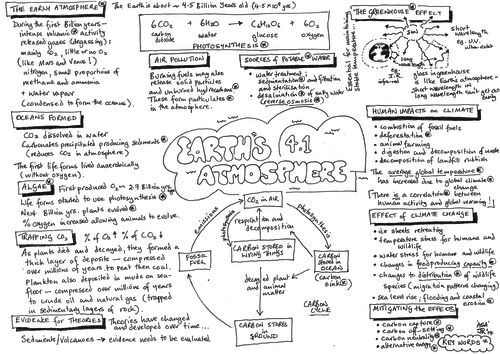 THE EARTH ATMOSPHERE
During the first Billion years-
intense volcanic activity
released gases (degassing):
mainly CO₂, little or no O₂
(like Mars and Venus!)
nitrogen, small proportions of
methane and ammonia
+ water vapour
(condensed to form the oceans).
The Earth is about ~ 4.5 Billion Years old (4.5×10⁹ yrs)
6CO₂ + 6H₂O → C₆H₁₂O₆ + 6O₂
carbon dioxide water glucose oxygen
PHOTOSYNTHESIS
AIR POLLUTION
Burning fuels may also
release solid particles
and unburned hydrocarbons
These form particulates
in the atmosphere.
SOURCES OF POTABLE WATER
water treatment:
sedimentation and filtration
and sterilisation
desalination of salty water
(reverse osmosis)
THE GREENHOUSE EFFECT
sun
short
wavelength
eg. UV
I.R
infrared
glass in greenhouse
is like Earth atmosphere -
short wavelength in
long wavelength can't get out
OCEANS FORMED
CO₂ dissolved in water
Carbonates precipitated producing sediments
(reduces CO₂ in atmosphere)
The first life forms lived anaerobically
(without oxygen).
ALGAE
First produced O₂ ~ 2.7 Billion yrs.
Life forms started to use photosynthesis
Next Billion yrs. plants evolved
% oxygen increased allowing animals to evolve.
EARTH'S 4.1
ATMOSPHERE
HUMAN IMPACTS on CLIMATE
• combustion of fossil fuels
• deforestation
• animal farming
• digestion and decomposition of waste
• decomposition of landfill rubbish
The average global temperature
has increased due to global climate
change
[There is a correlation between
human activity and global warming!]
TRAPPING CO₂
% of O₂ ↑ % of CO₂ ↓
As plants died and decayed, they formed a
thick layer of deposits - compressed
over millions of years to peat then coal.
Plankton also deposited in muds on sea-
floor - compressed over millions of years
to crude oil and natural gas (trapped
in sedimentary layers of rock).
CO₂ IN AIR
Emissions
photosynthesis
respiration and
decomposition
photosynthesis
FOSSIL
FUEL
CARBON STORED IN
LIVING THINGS
CARBON
STORED IN
OCEANS
(carbon
sink)
decay of plant
and animal
matter
CARBON
CYCLE
CARBON STORES
in GROUND
EFFECT OF CLIMATE CHANGE
• ice sheets retreating
• temperature stress for humans and
wildlife
• water stress for humans and wildlife
• changes in food producing capacity
• changes to distribution of wildlife
species (migration patterns changing)
• sea level rise; flooding and coastal
erosion
EVIDENCE FOR THEORIES
Theories have changed
and developed over time...
Sediments/Volcanoes → evidence needs to be evaluated
MITIGATING THE EFFECTS
• carbon capture
• carbon off-setting
• carbon neutrality
• alternative energy
KEY WORDS